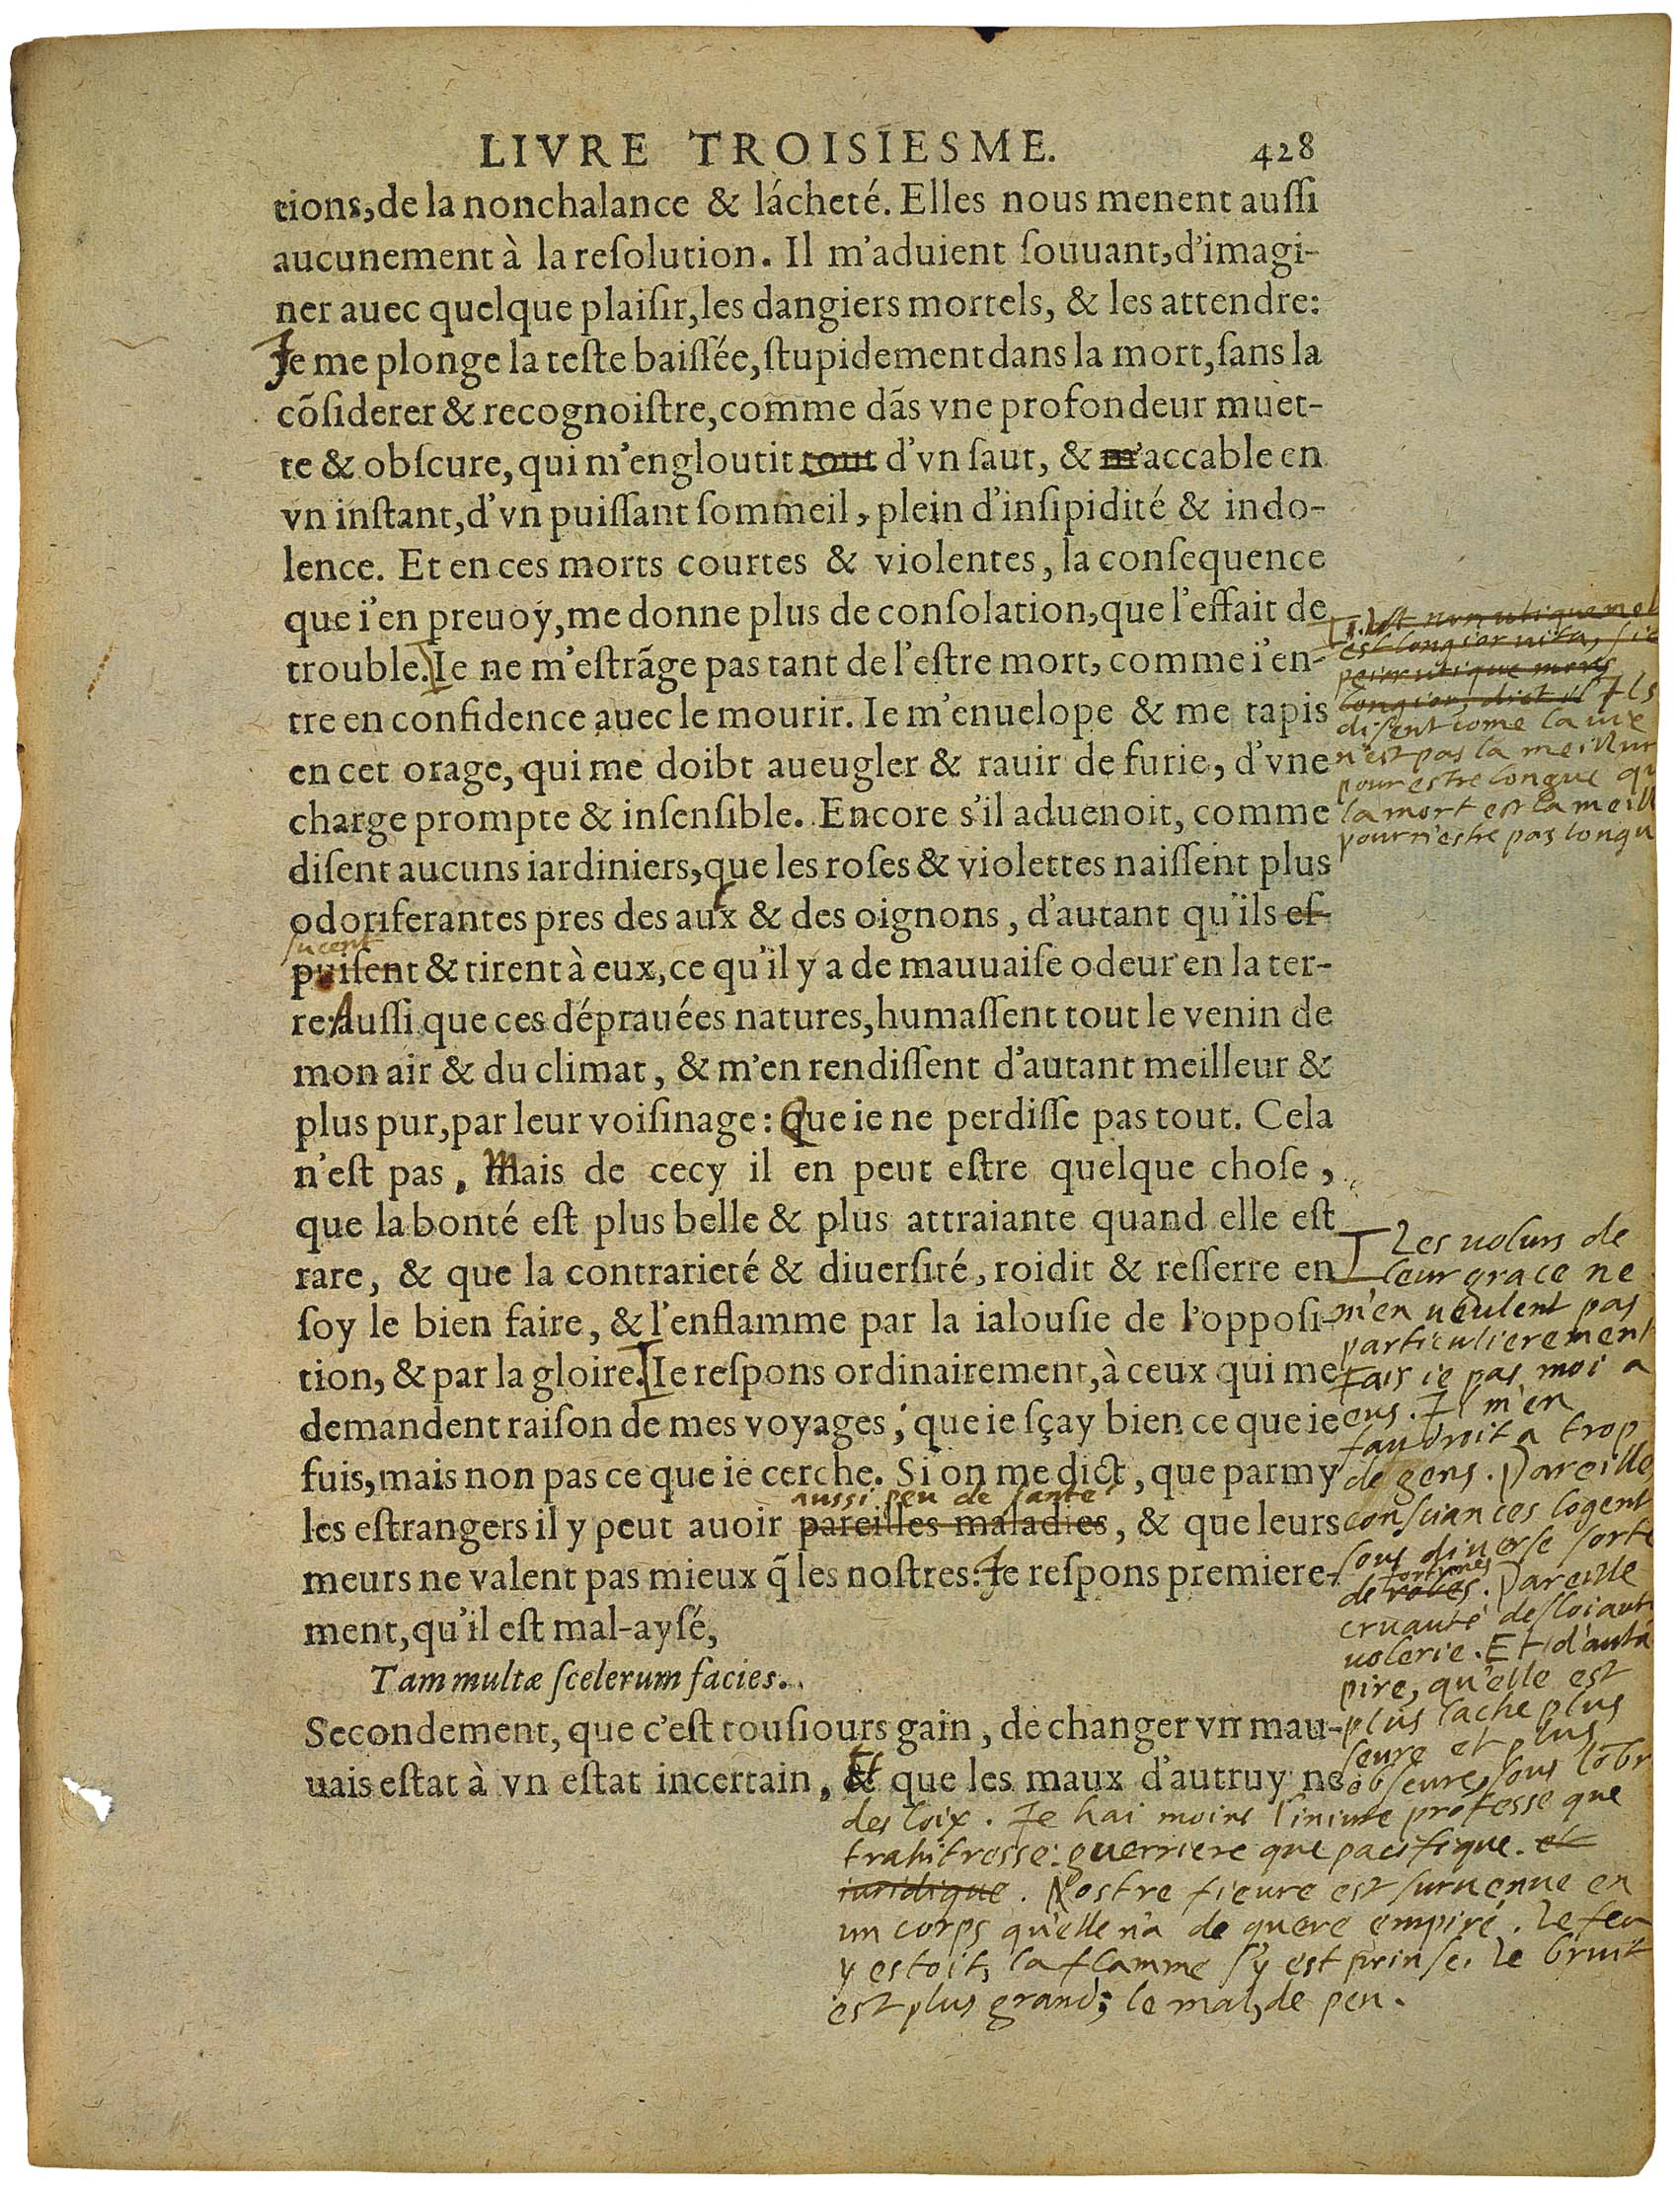 LIVRE TROISIESME. 428
tions, de la nonchalance & lácheté. Elles nous menent auſſi
aucunement à la reſolution. Il m'aduient ſouuant, d'imagi-
ner auec quelque plaiſir, les dangiers mortels, & les attendre:
Je me plonge la teſte baiſſée, ſtupidement dans la mort, ſans la
cõſiderer & recognoiſtre, comme dãs vne profondeur muet-
te & obſcure, qui m'engloutit tout d'vn ſaut, & m'accable en
vn inſtant, d'vn puiſſant ſommeil, plein d'inſipidité & indo-
lence. Et en ces morts courtes & violentes, la conſequence
que i'en preuoy, me donne plus de conſolation, que l'effait de
trouble. Ie ne m'eſtrãge pas tant de l'eſtre mort, comme i'en-
tre en confidence auec le mourir. Ie m'enuelope & me tapis
en cet orage, qui me doibt aueugler & rauir de furie, d'vne
charge prompte & inſenſible. Encore s'il aduenoit, comme
diſent aucuns iardiniers, que les roſes & violettes naiſſent plus
odoriferantes pres des aux & des oignons, d'autant qu'ils eſ-
sucent
puiſent & tirent à eux, ce qu'il y a de mauuaiſe odeur en la ter-
re: Auſſi que ces déprauées natures, humaſſent tout le venin de
mon air & du climat, & m'en rendiſſent d'autant meilleur &
plus pur, par leur voiſinage: Que ie ne perdiſſe pas tout. Cela
n'eſt pas, Mais de cecy il en peut eſtre quelque choſe,
que la bonté eſt plus belle & plus attraiante quand elle eſt
rare, & que la contrarieté & diuerſité, roidit & reſſerre en
ſoy le bien faire, & l'enflamme par la ialouſie de l'oppoſi-
tion, & par la gloire. Ie reſpons ordinairement, à ceux qui me
demandent raiſon de mes voyages; que ie ſçay bien ce que ie
fuis, mais non pas ce que ie cerche. Si on me dict, que parmy
aussi peu de sante
les eſtrangers il y peut auoir pareilles maladies, & que leurs
meurs ne valent pas mieux q̃ les noſtres: Je reſpons premiere-
ment, qu'il eſt mal-ayſé,
Tam multæ ſcelerum facies.
Secondement, que c'eſt touſiours gain, de changer vn mau-
uais eſtat à vn eſtat incertain, Et que les maux d'autruy ne
non utique mel
est longior uita, sic
peior utique mors
longior, dict il Ils
disent come la uie
n'est pas la meillur
pour estre longue qu
la mort est la meill
pour n'estre pas longu
Les uolurs de
leur grace ne
m'en ueulent pas
particulierement
Fais ie pas moi a
eus. Il m'en
faudroit a trop
de gens. Pareille
consciances logent
sous diuerse sorte
fortunes
de robes. Pareille
cruauté desloiaut
uolerie. Et d'auta
pire, qu'elle est
plus lache plus
seure et plus
obscure, sous l'õbr
des loix. Ie hai moins l'iniure professe que
trahitresse: guerriere que pacifique. et
iuridique. Nostre fieure est suruenue en
un corps qu'elle n'a de guere empiré. le feu
y estoit, la flamme s'y est prinse. le bruit
est plus grand; le mal, de peu.